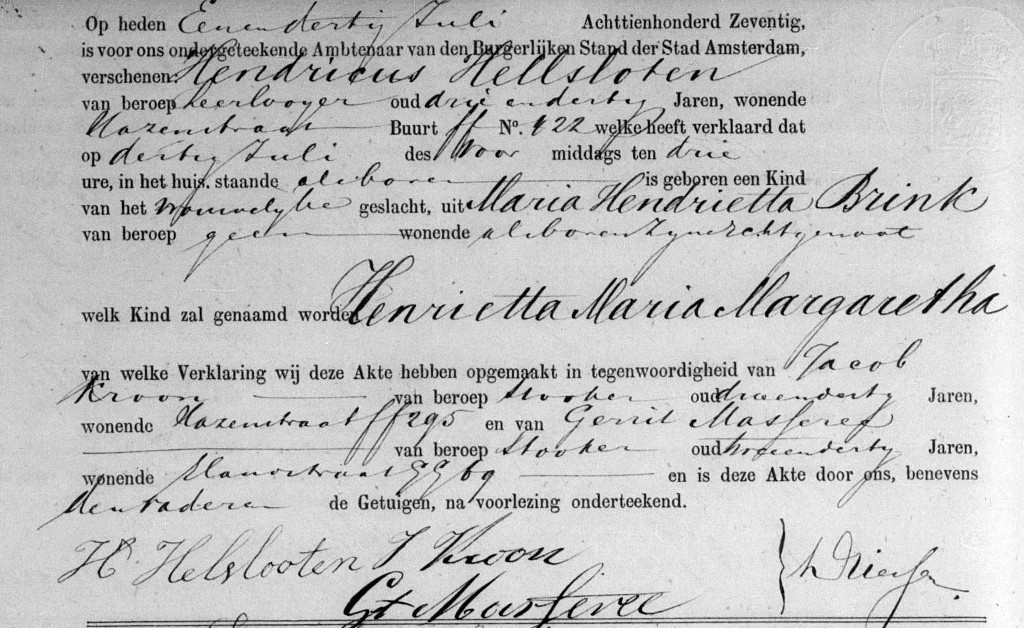 Op heden Eenendertig Juli Achttienhonderd Zeventig,
is voor ons ondergeteekende Ambtenaar van den Burgerlijken Stand der Stad Amsterdam,
verschenen: Hendricus Hellsloten
van beroep Leerlooyer oud drie endertig Jaren, wonende
Hazenstraat Buurt ff No. 422 welke heeft verklaard dat
op dertig Juli des voor middags ten drie
ure, in het huis, staande alsboven is geboren een Kind
van het vrouwelyke geslacht, uit Maria Hendrietta Brink
van beroep geen wonende alsboven zyne echtgenoot
welk Kind zal genaamd worden Henrietta Maria Margaretha
van welke Verklaring wij deze Akte hebben opgemaakt in tegenwoordigheid van Jacob
Kroon van beroep Stooker oud drieendertig Jaren,
wonende Hazenstraat ff 295 en van Gerrit
van beroep Stooker oud tweeendertig Jaren,
wonende 69 en is deze Akte door ons, benevens
den vader en de Getuigen, na voorlezing onderteekend.
H. Helslooten J Kroon
Gt